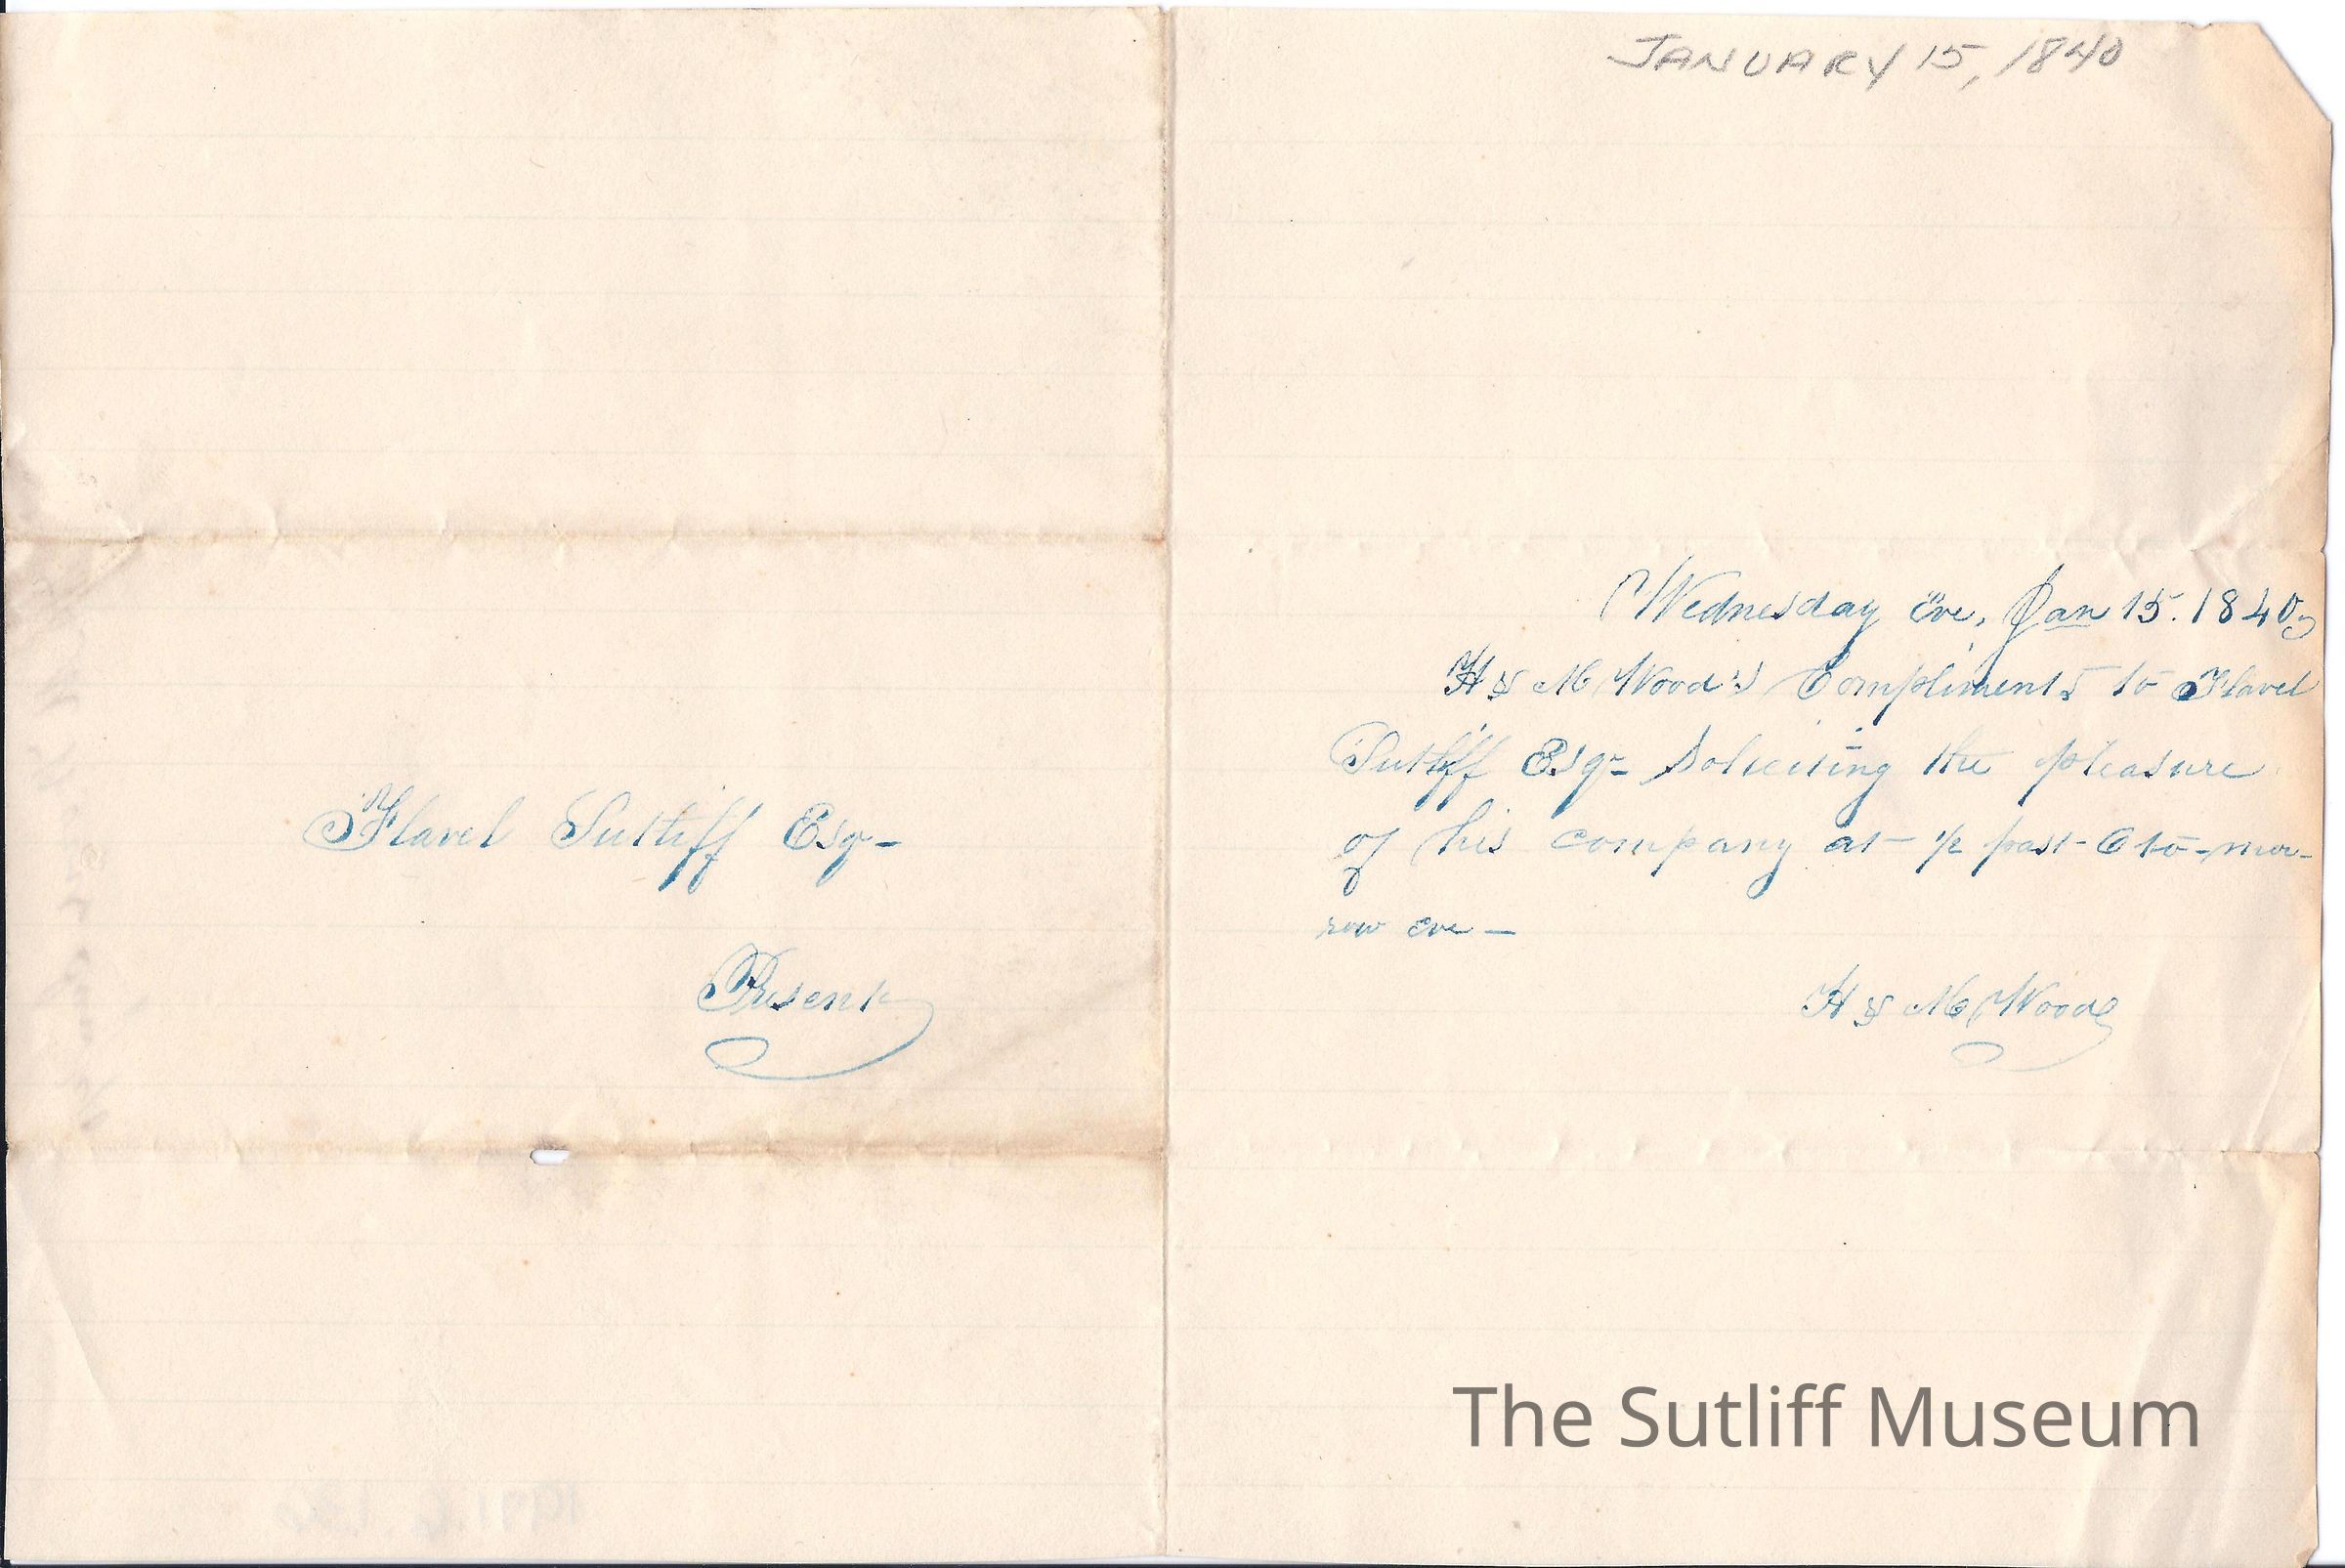 JANUARY 15, 1840
Wednesday eve, Jan 15. 1840
H & M Wood's Compliments to Flavel
Sutliff Esqr- Soliciting the pleasure
of his company at ½ past 6 to-mor-
row eve —
H & M Wood
Flavel Sutliff Esqr-
Present
The Sutliff Museum